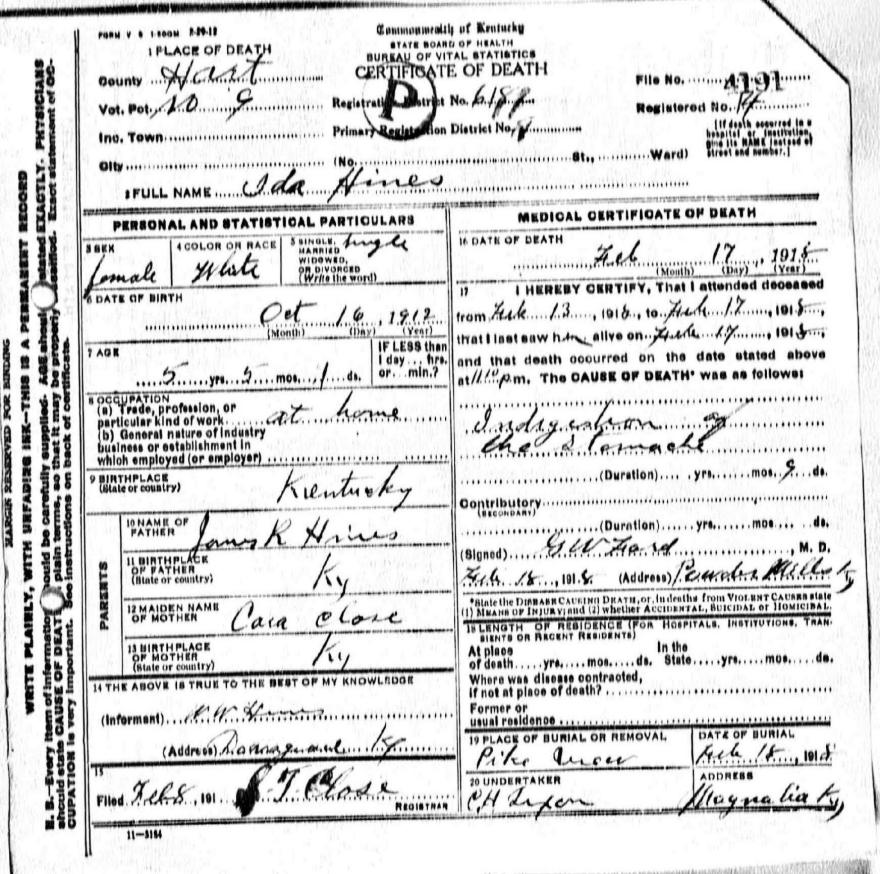 FORM V S 1-500M 2-29-12
Commonwealth of Kentucky
STATE BOARD OF HEALTH
BUREAU OF VITAL STATISTICS
CERTIFICATE OF DEATH
1 PLACE OF DEATH
County Hart
Vot. Pct. No 9
Inc. Town
City
Registration District No. 6189
Primary Registration District No.
(No. St., Ward)
P
File No. 4191
Registered No. 17
[If death occurred in a hospital or institution, give its NAME instead of street and number.]
2 FULL NAME Ida Hines
PERSONAL AND STATISTICAL PARTICULARS
3 SEX
female
4 COLOR OR RACE
White
5 SINGLE, MARRIED, WIDOWED, OR DIVORCED (Write the word)
Single
6 DATE OF BIRTH
Oct 16, 1912
(Month) (Day) (Year)
7 AGE
5 yrs. 5 mos. 1 ds.
IF LESS than 1 day... hrs. or... min.?
8 OCCUPATION
(a) Trade, profession, or particular kind of work at home
(b) General nature of industry
business or establishment in
which employed (or employer)
9 BIRTHPLACE
(State or country)
Kentucky
PARENTS
10 NAME OF FATHER
James R Hines
11 BIRTHPLACE OF FATHER
(State or country)
Ky
12 MAIDEN NAME OF MOTHER
Cora Close
13 BIRTHPLACE OF MOTHER
(State or country)
Ky
14 THE ABOVE IS TRUE TO THE BEST OF MY KNOWLEDGE
(Informant) Hines
(Address) Ky
15
Filed Feb 8, 191 J T Close
REGISTRAR
11-3184
MEDICAL CERTIFICATE OF DEATH
16 DATE OF DEATH
Feb 17, 1918
(Month) (Day) (Year)
17 I HEREBY CERTIFY, That I attended deceased
from Feb 13, 1918, to Feb 17, 1918,
that I last saw her alive on Feb 17, 1918,
and that death occurred on the date stated above
at 11 10 pm. The CAUSE OF DEATH* was as follows:
Indigestion of
the Stomach
(Duration) yrs. mos. 9 ds.
Contributory
(SECONDARY)
(Duration) yrs. mos. ds.
(Signed) G W Ford, M. D.
Feb 18, 1918 (Address) Powder Mills Ky
*State the DISEASE CAUSING DEATH, or, in deaths from VIOLENT CAUSES state
(1) MEANS OF INJURY and (2) whether ACCIDENTAL, SUICIDAL or HOMICIDAL.
18 LENGTH OF RESIDENCE (FOR HOSPITALS, INSTITUTIONS, TRAN-
SIENTS OR RECENT RESIDENTS)
At place of death yrs. mos. ds. In the State yrs. mos. ds.
Where was disease contracted,
if not at place of death?
Former or
usual residence
19 PLACE OF BURIAL OR REMOVAL
Pike View
DATE OF BURIAL
Feb 18, 1918
20 UNDERTAKER
C H
ADDRESS
Magnolia Ky
MARGIN RESERVED FOR BINDING
WRITE PLAINLY, WITH UNFADING INK—THIS IS A PERMANENT RECORD
N. B.—Every item of information should be carefully supplied. AGE should be stated EXACTLY. PHYSICIANS
should state CAUSE OF DEATH in plain terms, so that it may be properly classified. Exact statement of OC-
CUPATION is very important. See instructions on back of certificate.